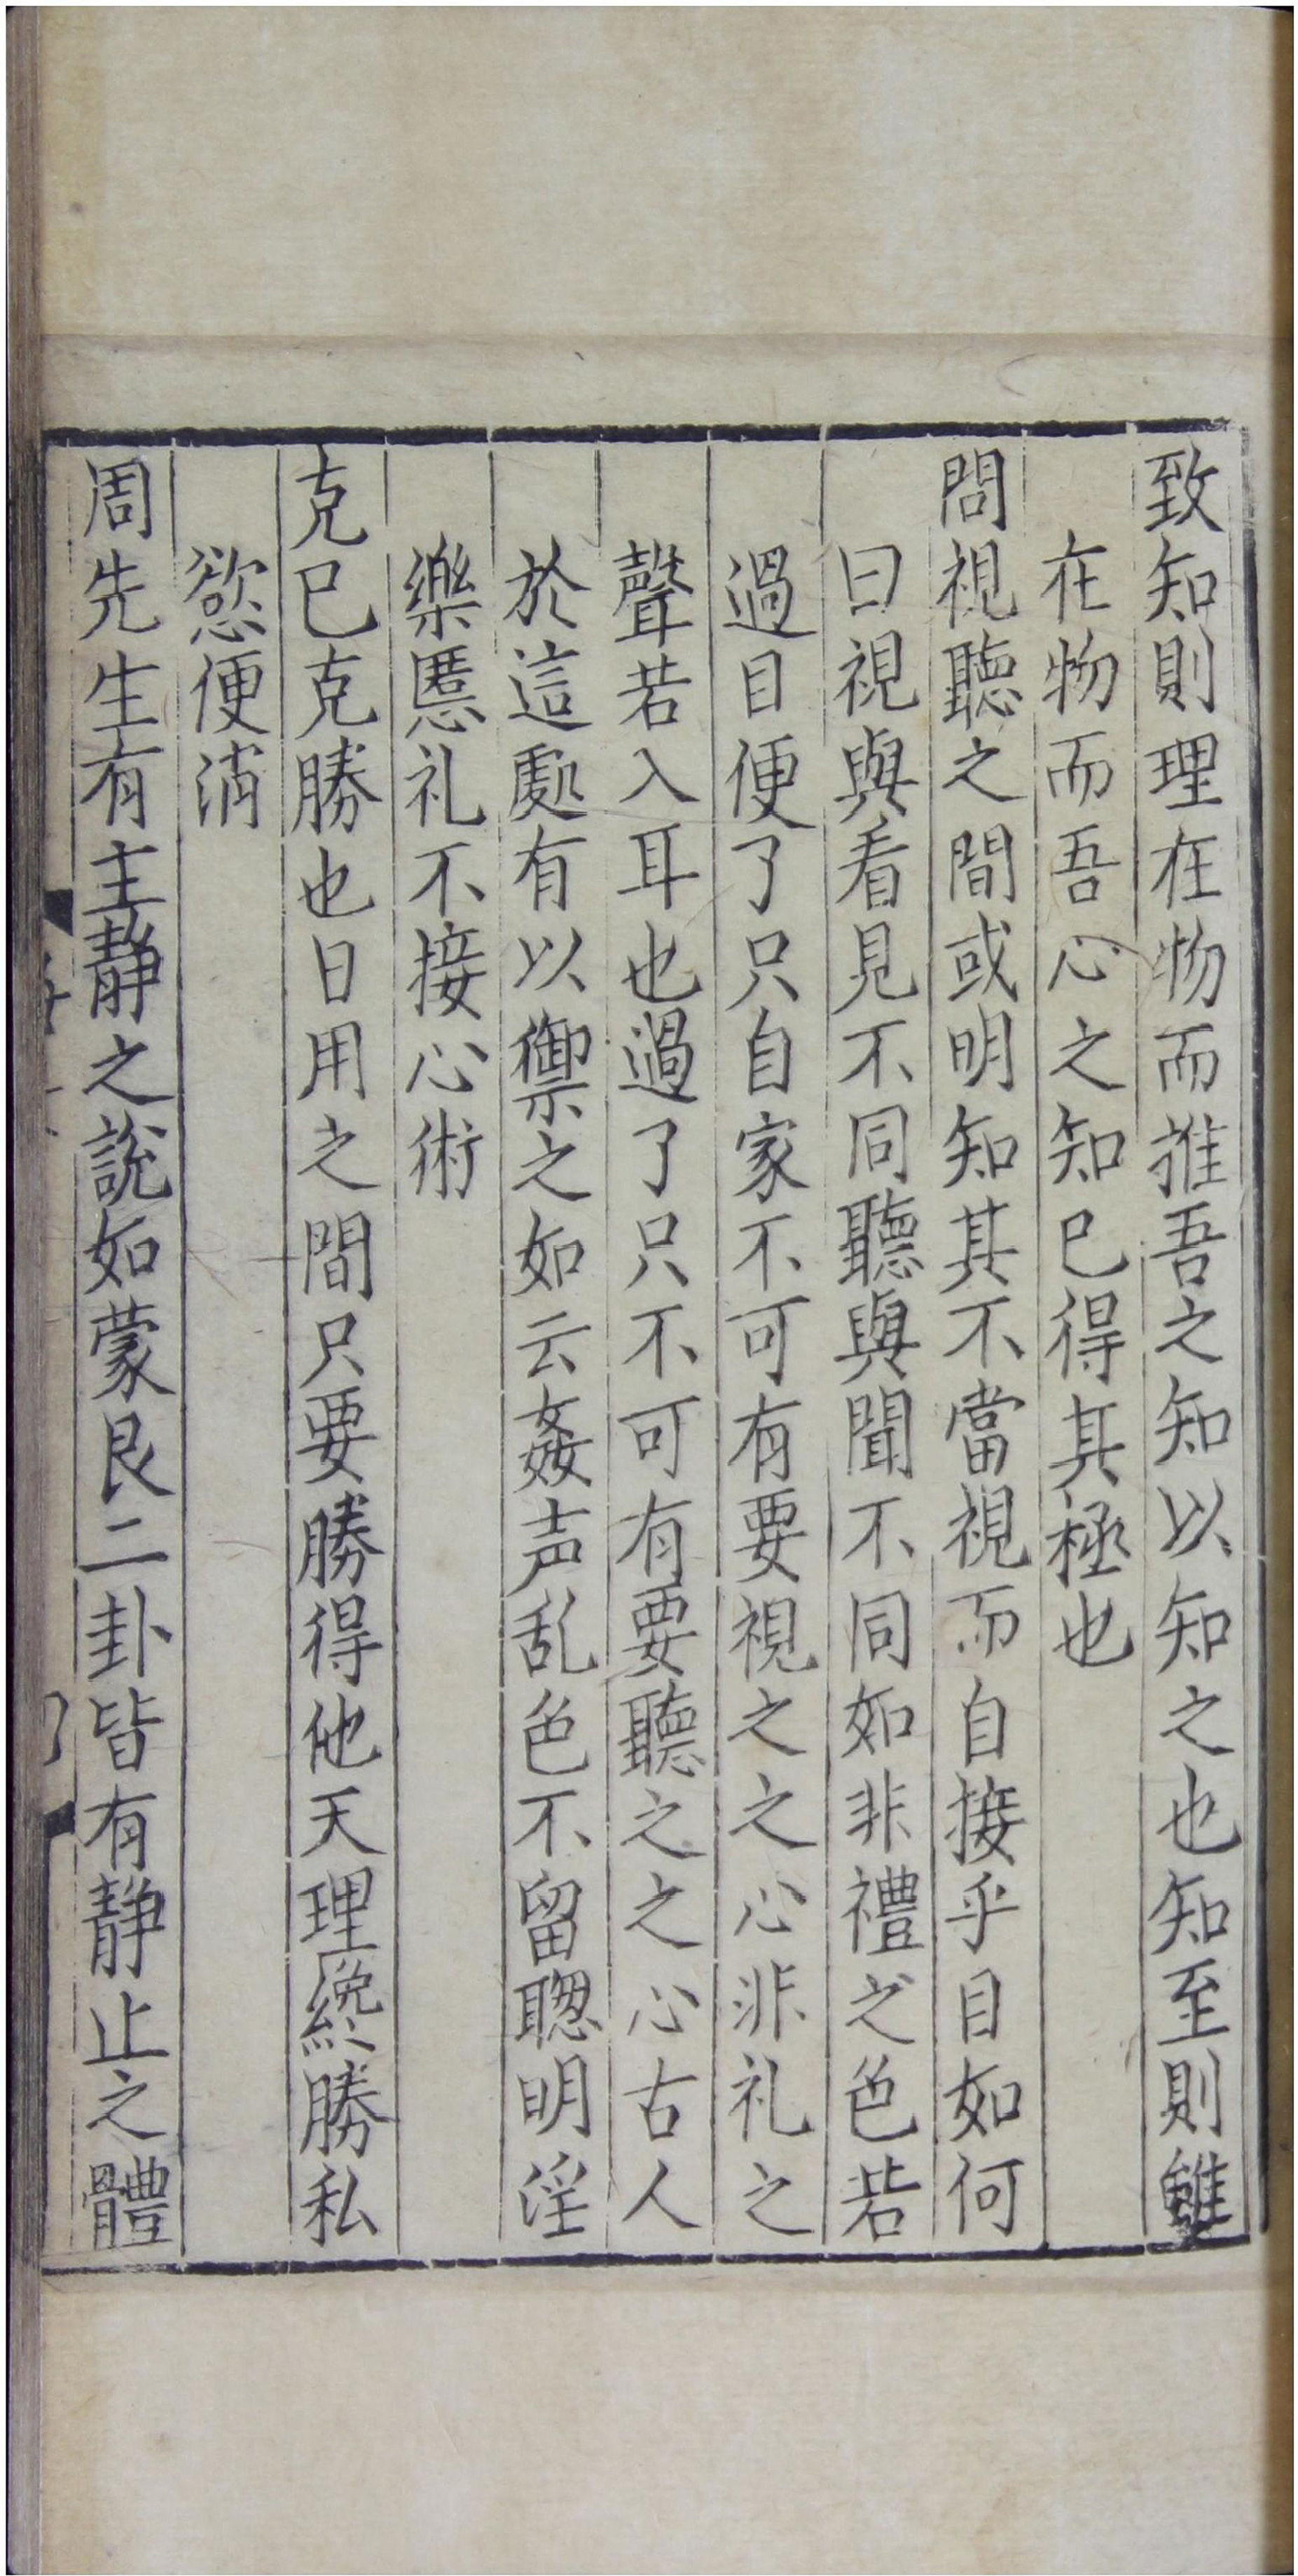 致知則理在物而推吾之知以知之也知至則雖
在物而吾心之知已得其極也
問視聽之間或明知其不當視而自接乎目如何
曰視與看見不同聽與聞不同如非禮之色若
過目便了只自家不可有要視之之心非礼之
聲若入耳也過了只不可有要聽之之心古人
於這處有以禦之如云姦声乱色不留聰明淫
樂慝礼不接心術
克己克勝也日用之間只要勝得他天理纔勝私
慾便消
周先生有主靜之說如蒙艮二卦皆有靜止之體